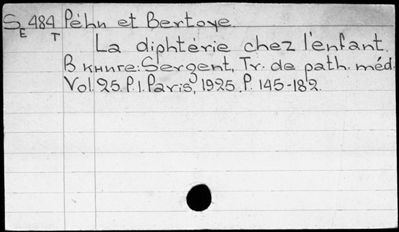 SE 484 T Péhu et Bertoye.
La diphtérie chez l'enfant.
В книге: Sergent, Tr. de path. méd.
Vol. 25. P. 1. Paris, 1925. P. 145-182.